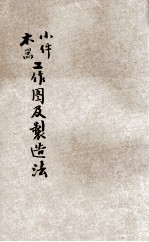 小件
木器
工作图及製造法